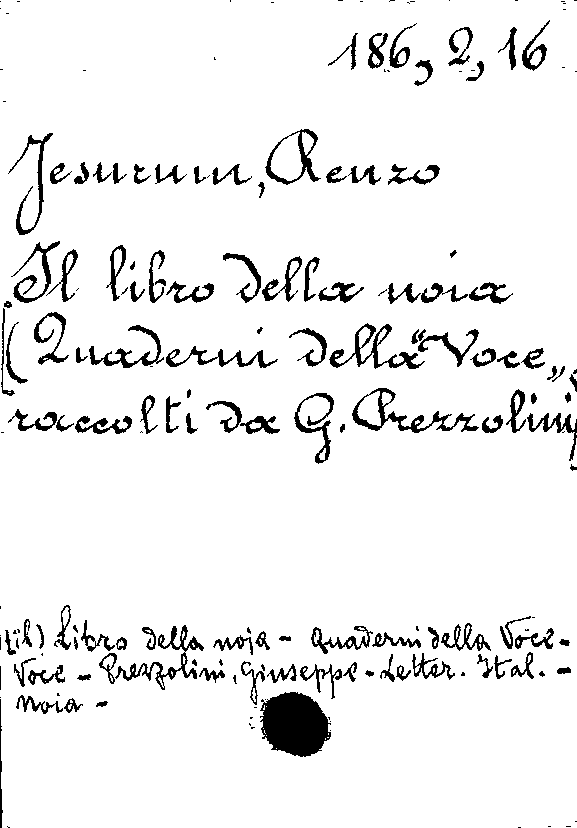 186, 2, 16
Jesurum, Renzo
Il libro della noia
(Quaderni della "Voce„
raccolti da G. Prezzolini)
tit) Libro della noja - Quaderni della Voce -
Voce - Prezzolini, Giuseppe - Letter. Ital. -
Noia -